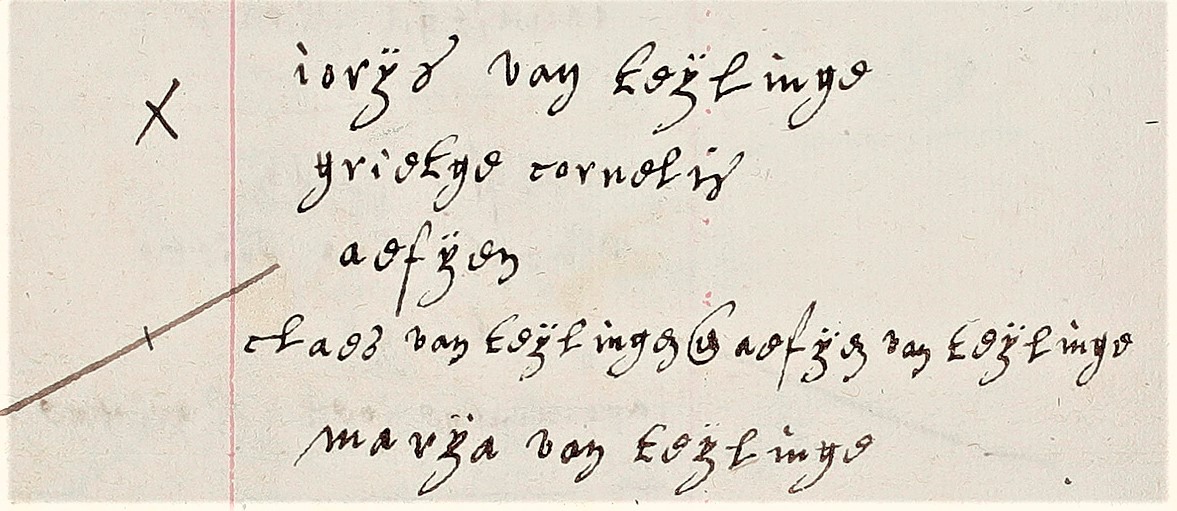 iorÿs van teÿlinge
grietge cornelis
aefÿen
claes van teÿlinge en aefÿen van teÿlinge
marÿa van teÿlinge